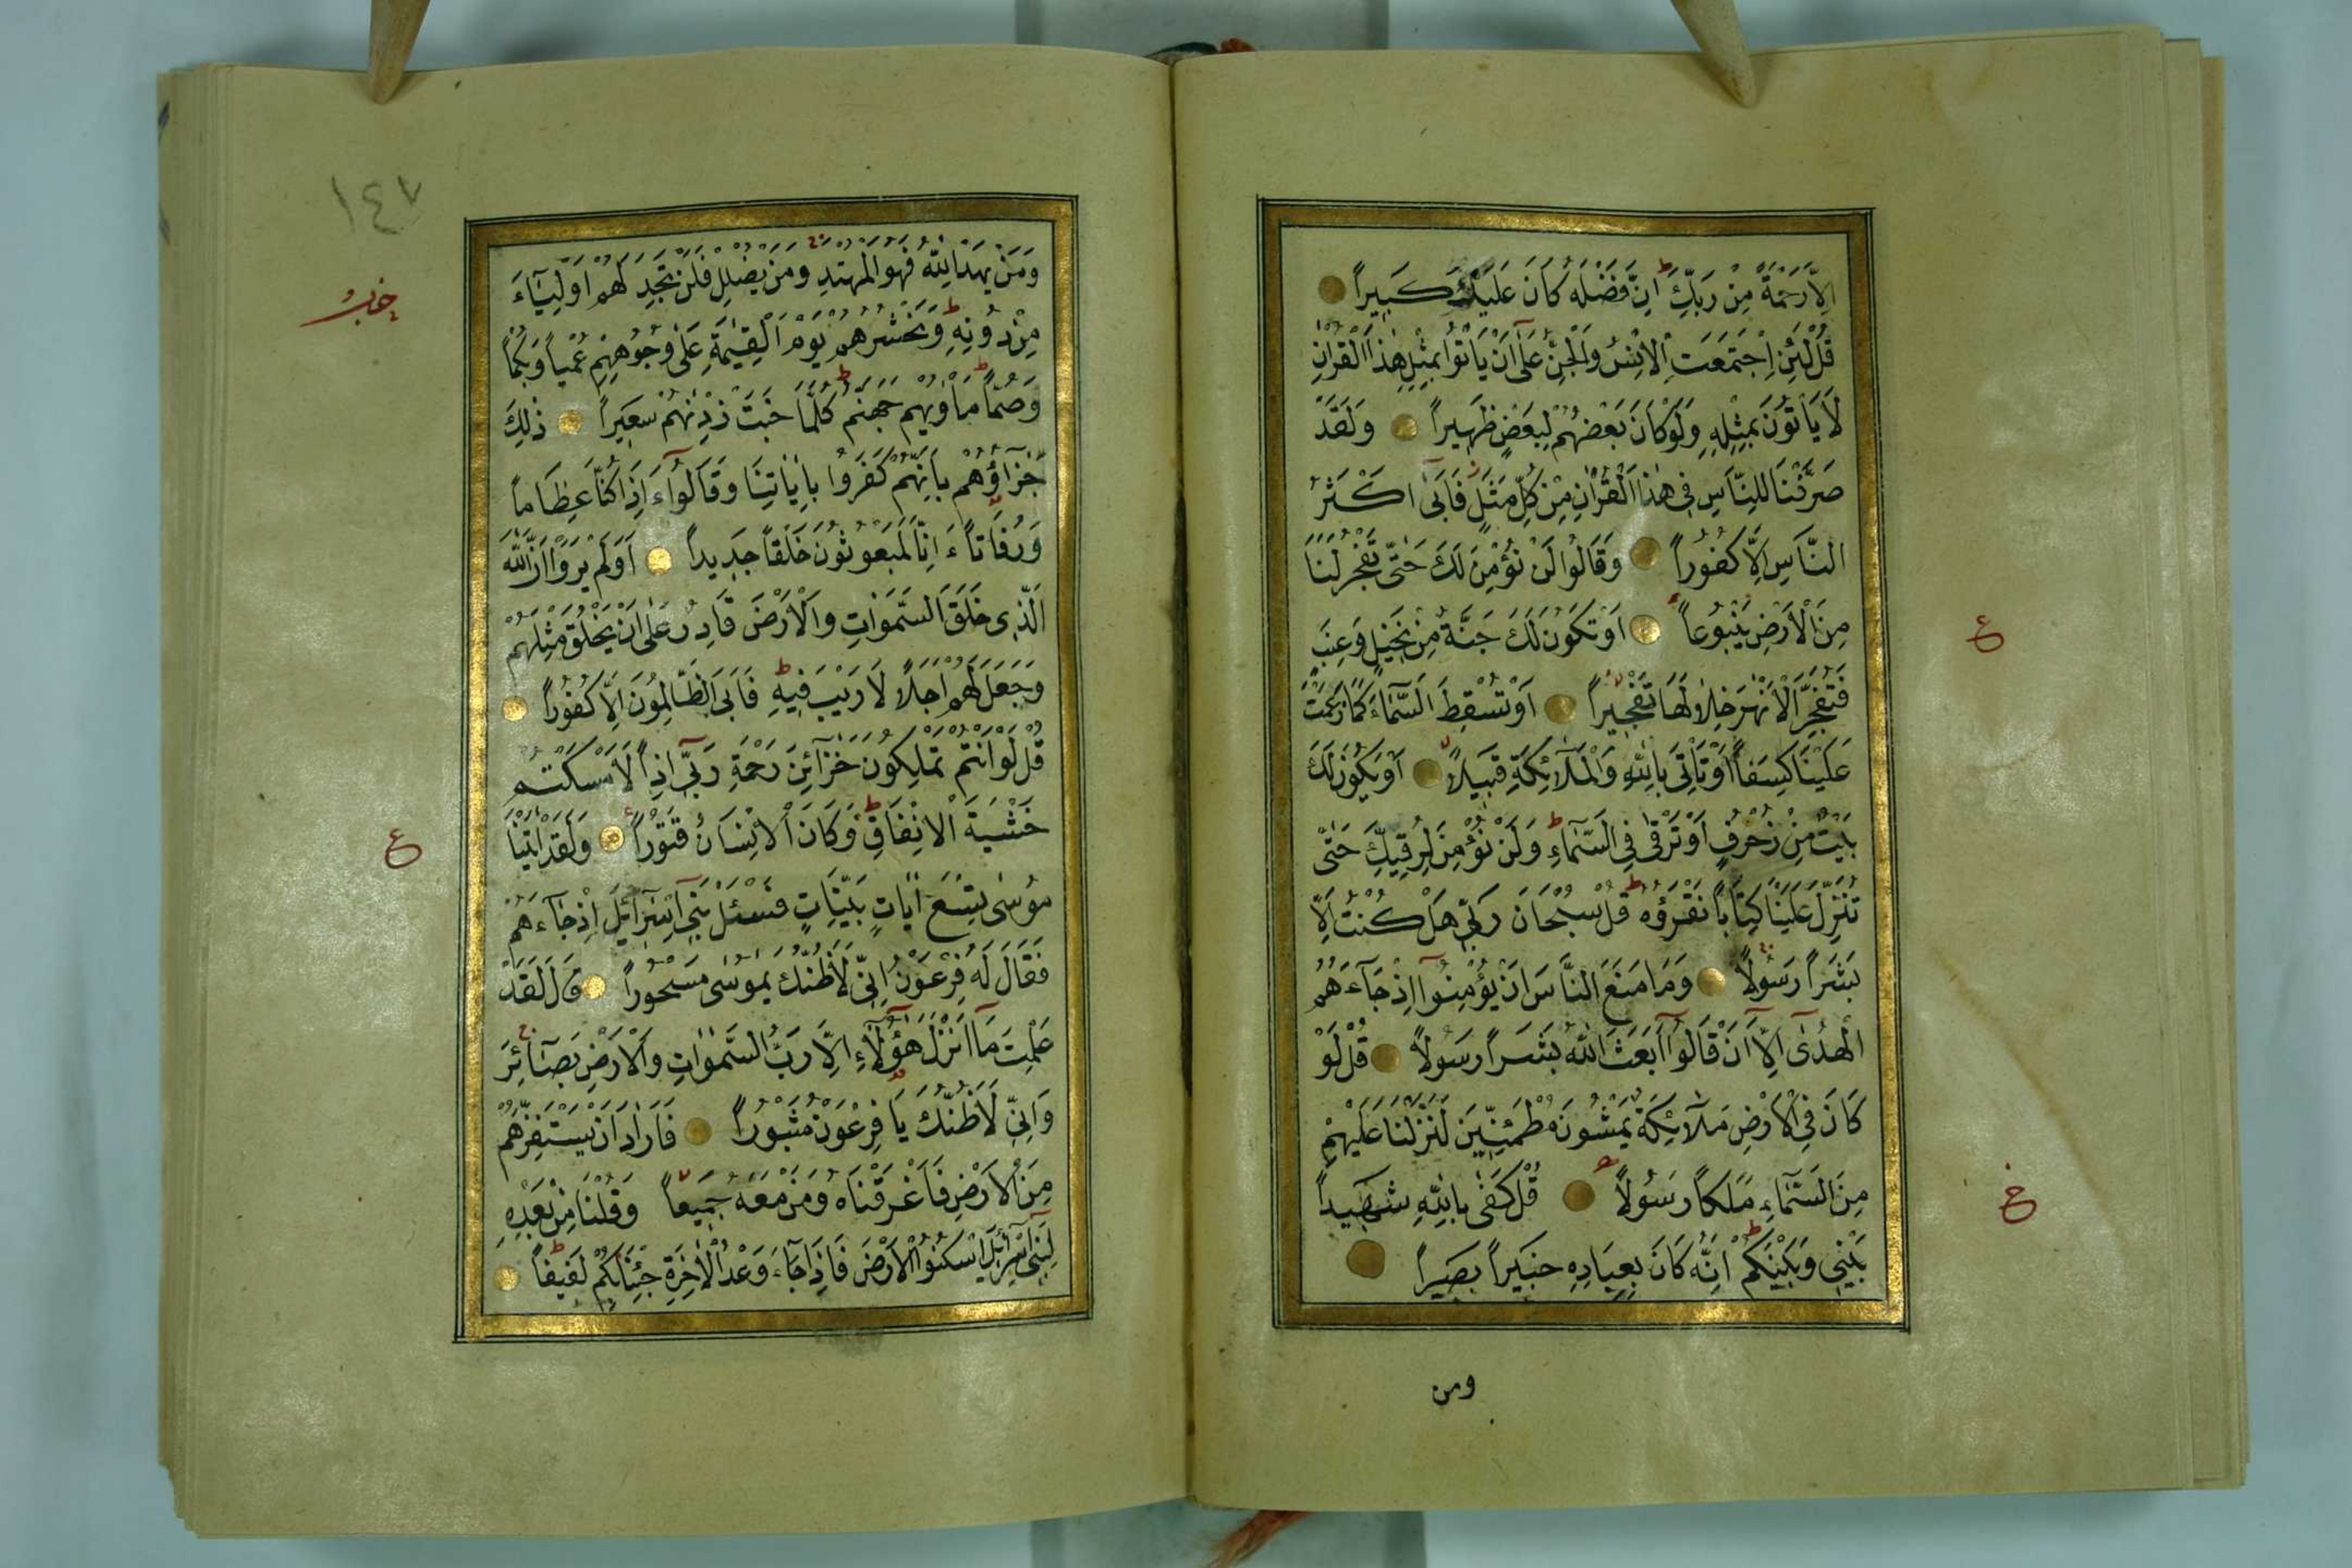 اِلَّا رَحْمَةً مِنْ رَبِّكَ اِنَّ فَضْلَهُ كَانَ عَلَيْكَ كَبِيرًا
قُلْ لَئِنِ اجْتَمَعَتِ الْاِنْسُ وَالْجِنُّ عَلٰٓى اَنْ يَاْتُوا بِمِثْلِ هٰذَا الْقُرْاٰنِ
لَا يَاْتُونَ بِمِثْلِهِ وَلَوْ كَانَ بَعْضُهُمْ لِبَعْضٍ ظَهِيرًا وَلَقَدْ
صَرَّفْنَا لِلنَّاسِ فِي هٰذَا الْقُرْاٰنِ مِنْ كُلِّ مَثَلٍ فَاَبٰٓى اَكْثَرُ
النَّاسِ اِلَّا كُفُورًا وَقَالُوا لَنْ نُؤْمِنَ لَكَ حَتّٰى تَفْجُرَ لَنَا
مِنَ الْاَرْضِ يَنْبُوعًا اَوْ تَكُونَ لَكَ جَنَّةٌ مِنْ نَخِيلٍ وَعِنَبٍ
فَتُفَجِّرَ الْاَنْهٰرَ خِلٰالَهَا تَفْجِيرًا اَوْ تُسْقِطَ السَّمَٓاءَ كَمَا زَعَمْتَ
عَلَيْنَا كِسَفًا اَوْ تَاْتِيَ بِاللّٰهِ وَالْمَلٰٓائِكَةِ قَبِيلًا اَوْ يَكُونَ لَكَ
بَيْتٌ مِنْ زُخْرُفٍ اَوْ تَرْقٰى فِي السَّمَٓاءِ وَلَنْ نُؤْمِنَ لِرُقِيِّكَ حَتّٰى
تُنَزِّلَ عَلَيْنَا كِتَابًا نَقْرَؤُهُ قُلْ سُبْحَانَ رَبِّي هَلْ كُنْتُ اِلَّا
بَشَرًا رَسُولًا وَمَا مَنَعَ النَّاسَ اَنْ يُؤْمِنُٓوا اِذْ جَٓاءَهُمُ
الْهُدٰٓى اِلَّٓا اَنْ قَالُٓوا اَبَعَثَ اللّٰهُ بَشَرًا رَسُولًا قُلْ لَوْ
كَانَ فِي الْاَرْضِ مَلٰٓائِكَةٌ يَمْشُونَ مُطْمَئِنِّينَ لَنَزَّلْنَا عَلَيْهِمْ
مِنَ السَّمَٓاءِ مَلَكًا رَسُولًا قُلْ كَفٰى بِاللّٰهِ شَهِيدًا
بَيْنِي وَبَيْنَكُمْ اِنَّهُ كَانَ بِعِبَادِهِ خَبِيرًا بَصِيرًا
ومن
ع
١٤٧
وَمَنْ يَهْدِ اللّٰهُ فَهُوَ الْمُهْتَدِ وَمَنْ يُضْلِلْ فَلَنْ تَجِدَ لَهُمْ اَوْلِيَٓاءَ
مِنْ دُونِهِ وَنَحْشُرُهُمْ يَوْمَ الْقِيٰمَةِ عَلٰى وُجُوهِهِمْ عُمْيًا وَبُكْمًا
وَصُمًّا مَاْوٰيهُمْ جَهَنَّمُ كُلَّمَا خَبَتْ زِدْنٰهُمْ سَعِيرًا ذٰلِكَ
جَزَٓاؤُهُمْ بِاَنَّهُمْ كَفَرُوا بِاٰيَاتِنَا وَقَالُٓوا ءَاِذَا كُنَّا عِظَامًا
وَرُفَاتًا ءَاِنَّا لَمَبْعُوثُونَ خَلْقًا جَدِيدًا اَوَلَمْ يَرَوْا اَنَّ اللّٰهَ
الَّذِي خَلَقَ السَّمٰوَاتِ وَالْاَرْضَ قَادِرٌ عَلٰٓى اَنْ يَخْلُقَ مِثْلَهُمْ
وَجَعَلَ لَهُمْ اَجَلًا لَا رَيْبَ فِيهِ فَاَبَى الظَّالِمُونَ اِلَّا كُفُورًا
قُلْ لَوْ اَنْتُمْ تَمْلِكُونَ خَزَٓائِنَ رَحْمَةِ رَبِّٓي اِذًا لَاَمْسَكْتُمْ
خَشْيَةَ الْاِنْفَاقِ وَكَانَ الْاِنْسَانُ قَتُورًا وَلَقَدْ اٰتَيْنَا
مُوسٰى تِسْعَ اٰيَاتٍ بَيِّنَاتٍ فَسْـَٔلْ بَنِٓي اِسْرَٓائِيلَ اِذْ جَٓاءَهُمْ
فَقَالَ لَهُ فِرْعَوْنُ اِنِّي لَاَظُنُّكَ يٰمُوسٰى مَسْحُورًا قَالَ لَقَدْ
عَلِمْتَ مَٓا اَنْزَلَ هٰٓؤُلَٓاءِ اِلَّا رَبُّ السَّمٰوَاتِ وَالْاَرْضِ بَصَٓائِرَ
وَاِنِّي لَاَظُنُّكَ يَا فِرْعَوْنُ مَثْبُورًا فَاَرَادَ اَنْ يَسْتَفِزَّهُمْ
مِنَ الْاَرْضِ فَاَغْرَقْنَاهُ وَمَنْ مَعَهُ جَمِيعًا وَقُلْنَا مِنْ بَعْدِهِ
لِبَنِٓي اِسْرَٓائِلَ اسْكُنُوا الْاَرْضَ فَاِذَا جَٓاءَ وَعْدُ الْاٰخِرَةِ جِئْنَا بِكُمْ لَفِيفًا
ع